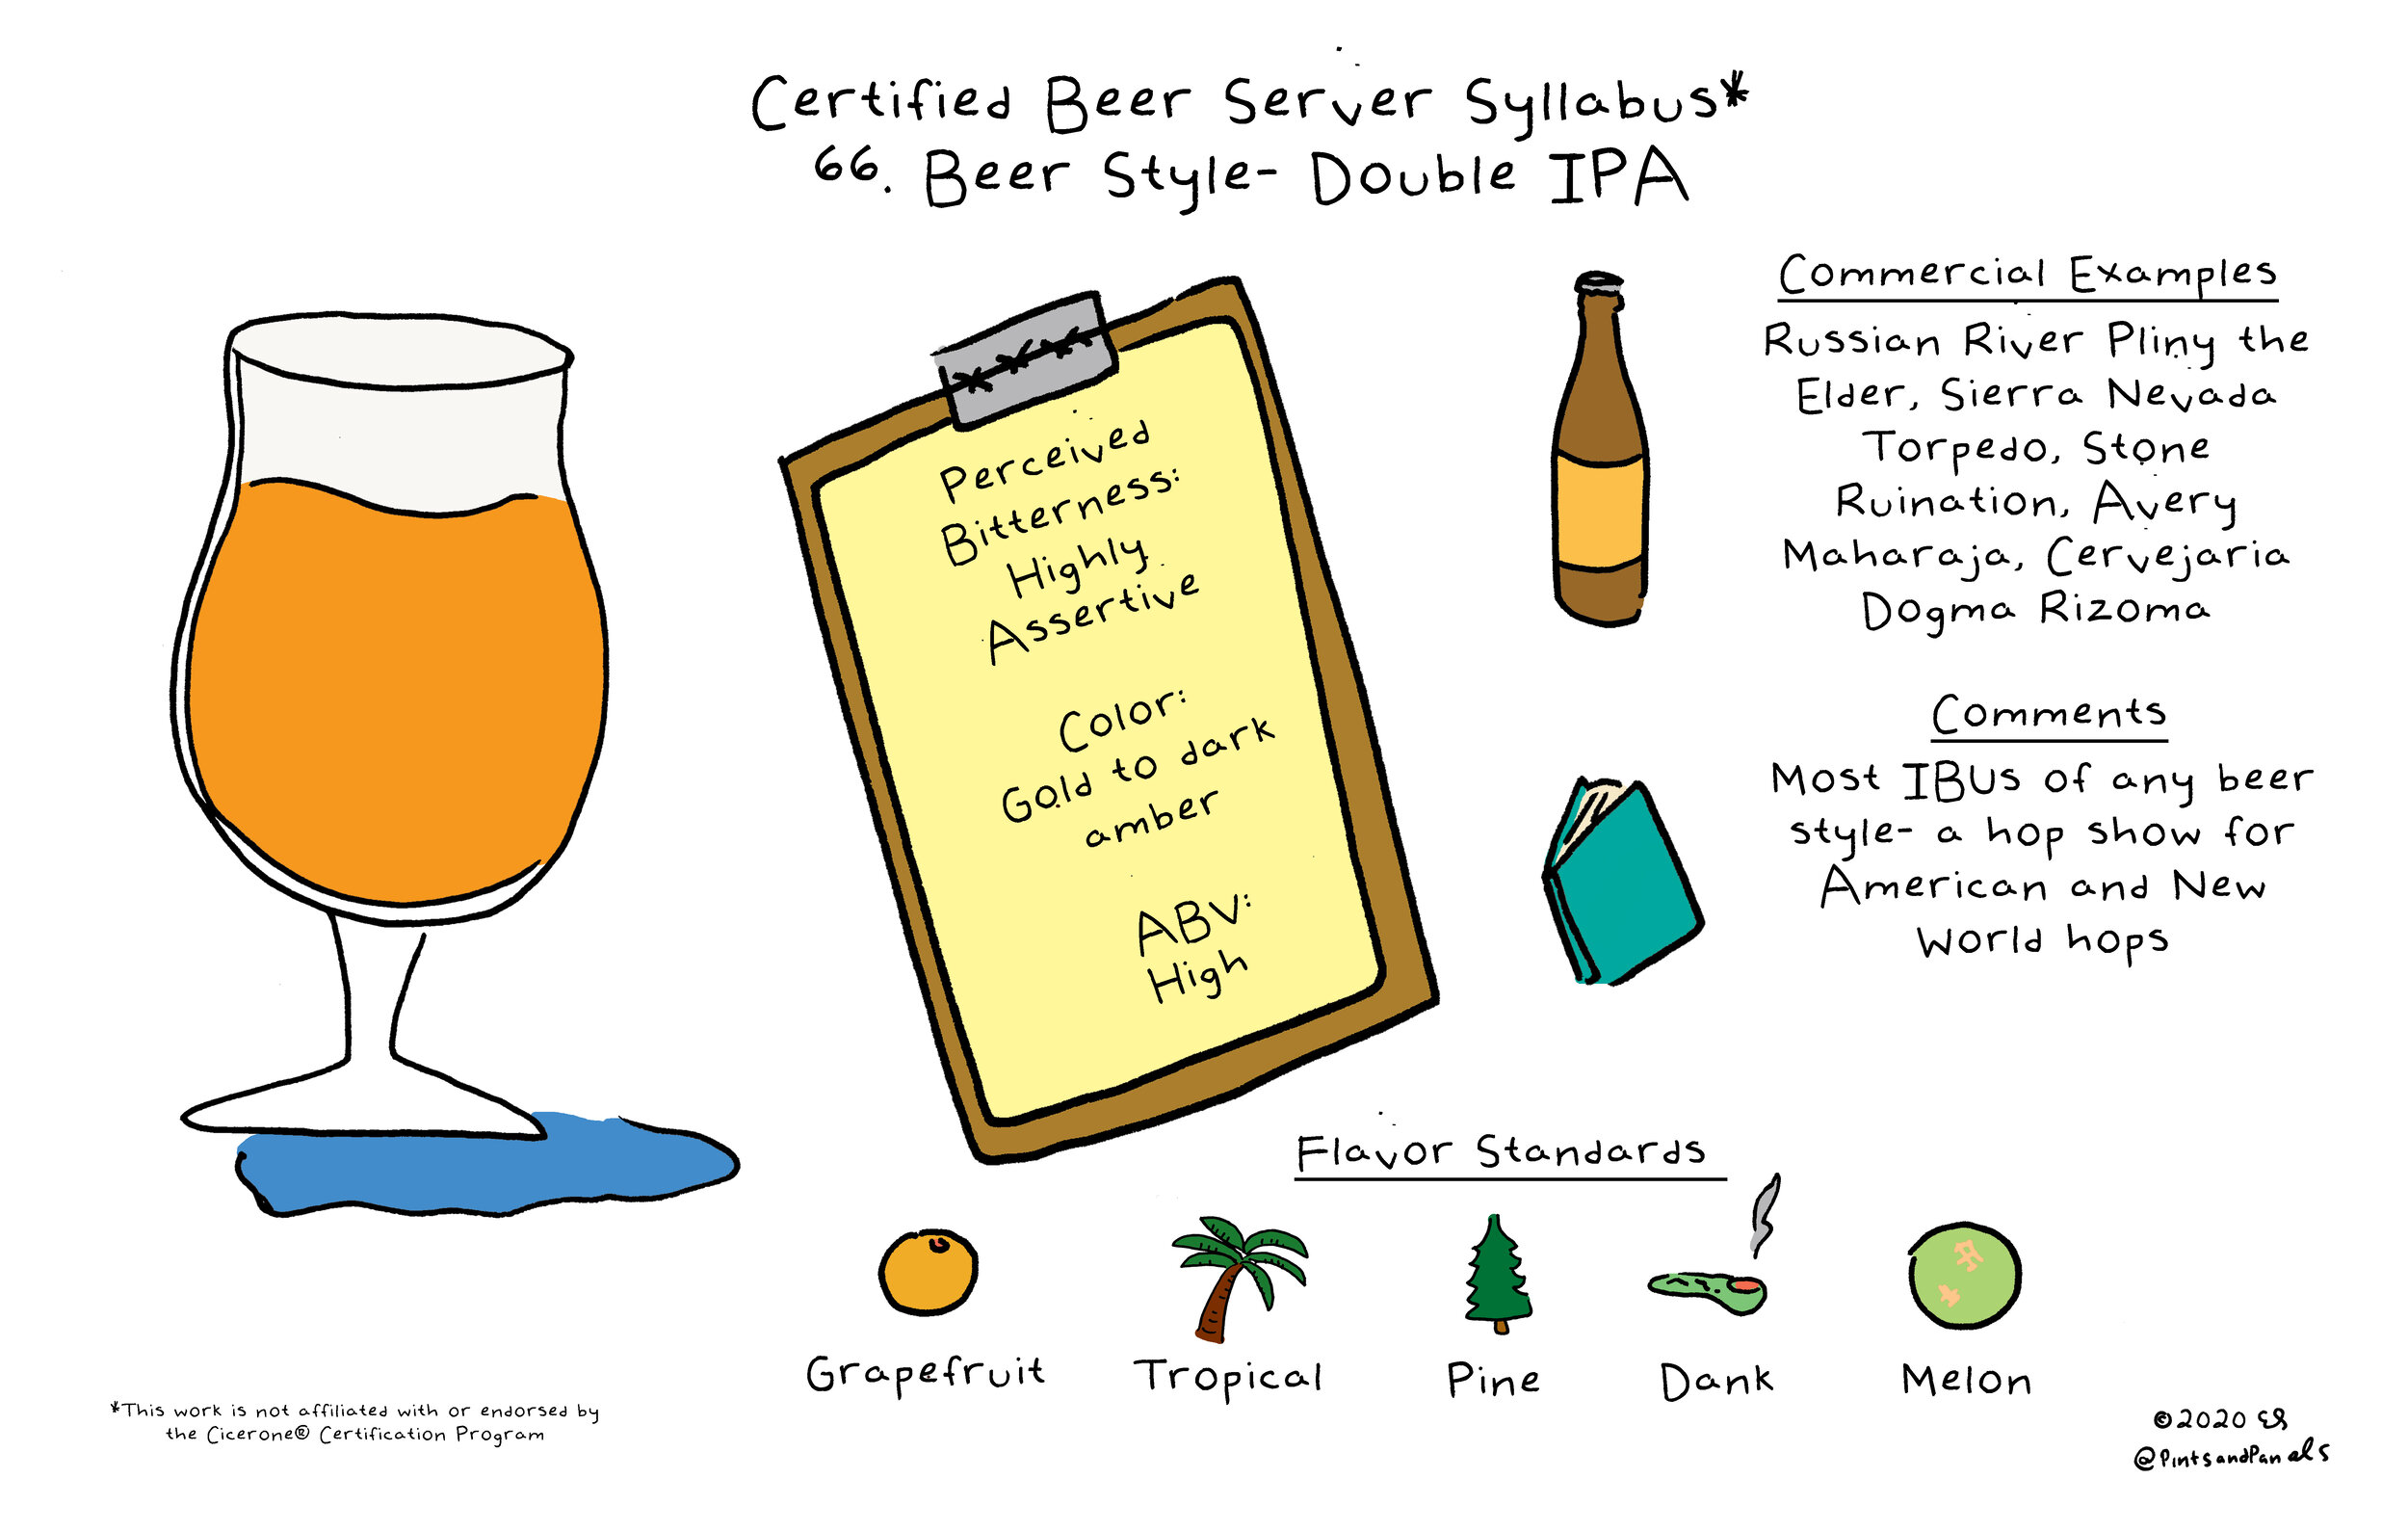 Certified Beer Server Syllabus*
66. Beer Style- Double IPA
Perceived
Bitterness:
Highly
Assertive
Color:
Gold to dark
amber
ABV:
High
Commercial Examples
Russian River Pliny the
Elder, Sierra Nevada
Torpedo, Stone
Ruination, Avery
Maharaja, Cervejaria
Dogma Rizoma
Comments
Most IBUs of any beer
style- a hop show for
American and New
World hops
Flavor Standards
Grapefruit
Tropical
Pine
Dank
Melon
*This work is not affiliated with or endorsed by
the Cicerone® Certification Program
©2020 ES
@PintsandPanels